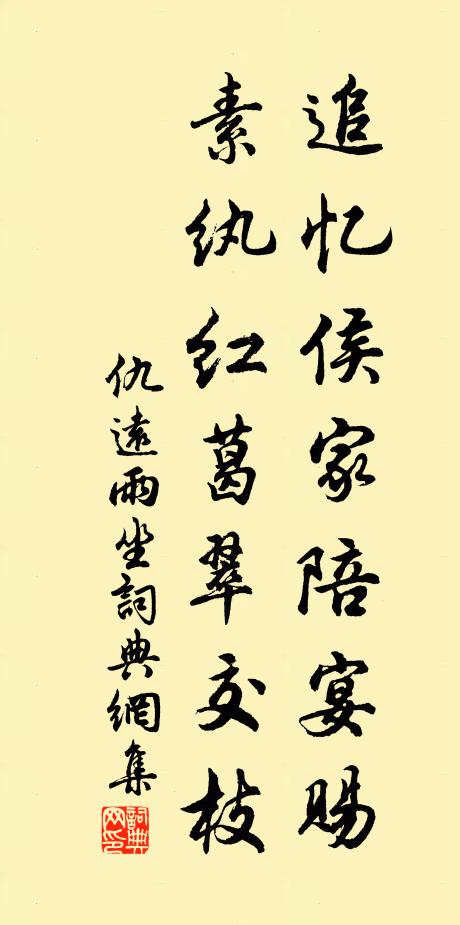 追忆侯家陪宴赐
素纨红葛翠交枝
仇遠雨坐詞典網集
詞典网印